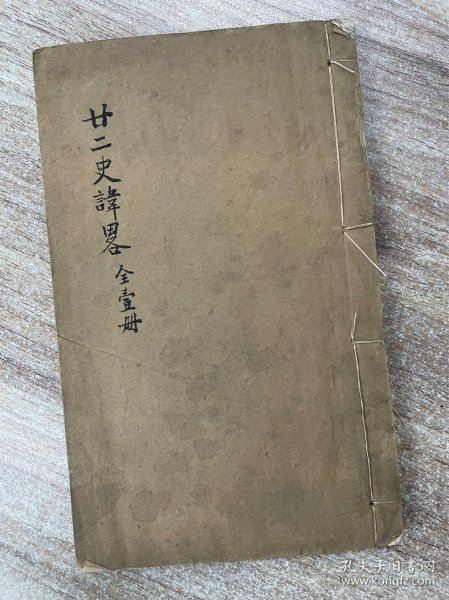 廿二史諱畧
全壹册
孔夫子旧书网
www.kongfz.com